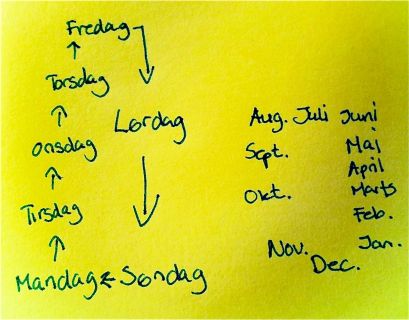 Fredag
Torsdag
Lørdag
Onsdag
Tirsdag
Mandag Søndag
Aug. Juli Juni
Sept. Maj
April
Okt. Marts
Feb.
Nov. Jan.
Dec.